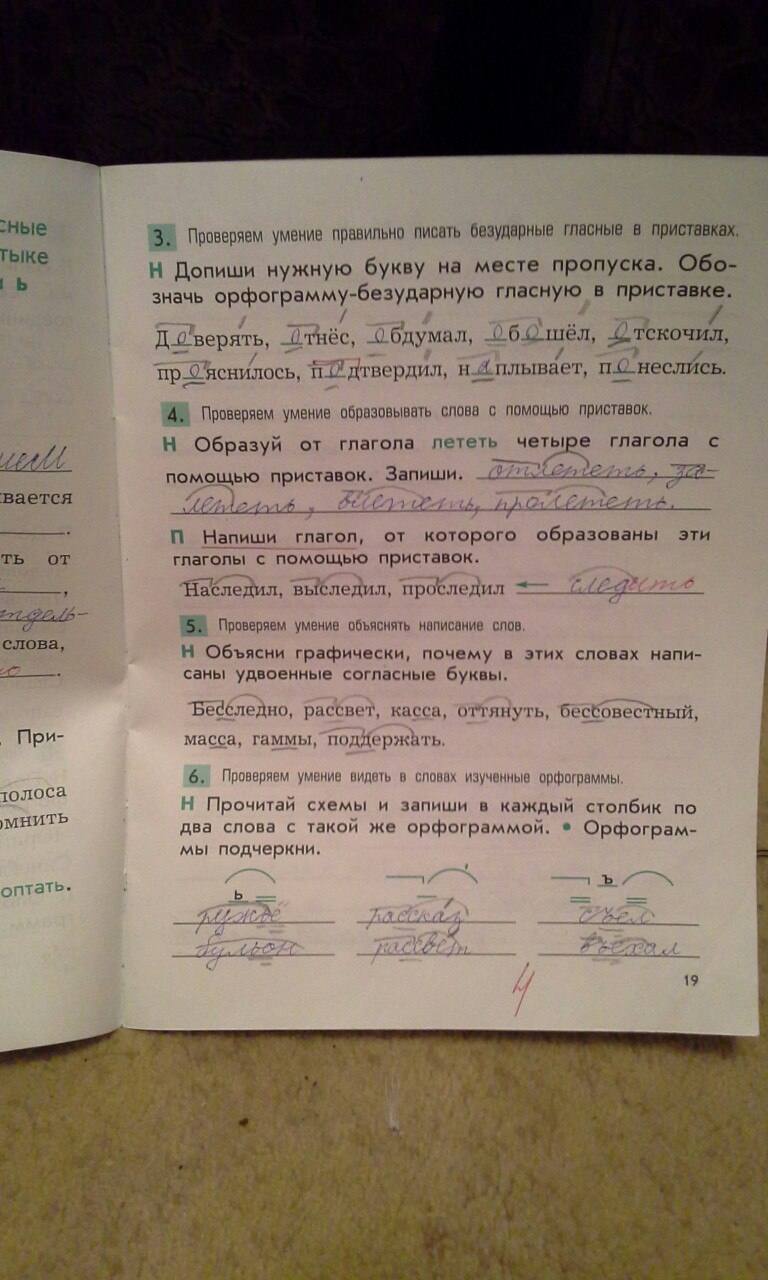 сные
тыке
ь
3. Проверяем умение правильно писать безударные гласные в приставках.
Н Допиши нужную букву на месте пропуска. Обо-
значь орфограмму-безударную гласную в приставке.
Доверять, отнёс, обдумал, обошёл, отскочил,
прояснилось, подтвердил, наплывает, понеслись.
4. Проверяем умение образовывать слова с помощью приставок.
Н Образуй от глагола лететь четыре глагола с
помощью приставок. Запиши. отлететь, за-
лететь, влететь, пролететь.
П Напиши глагол, от которого образованы эти
глаголы с помощью приставок.
Наследил, выследил, проследил ← следить
5. Проверяем умение объяснять написание слов.
Н Объясни графически, почему в этих словах напи-
саны удвоенные согласные буквы.
Бесследно, рассвет, касса, оттянуть, бессовестный,
масса, гаммы, поддержать.
6. Проверяем умение видеть в словах изученные орфограммы.
Н Прочитай схемы и запиши в каждый столбик по
два слова с такой же орфограммой. • Орфограм-
мы подчеркни.
ь ъ
ружьё рассказ съел
бульон рассвет въехал
4
19
ивается
ть от
тдель-
слова,
При-
полоса
омнить
оптать.